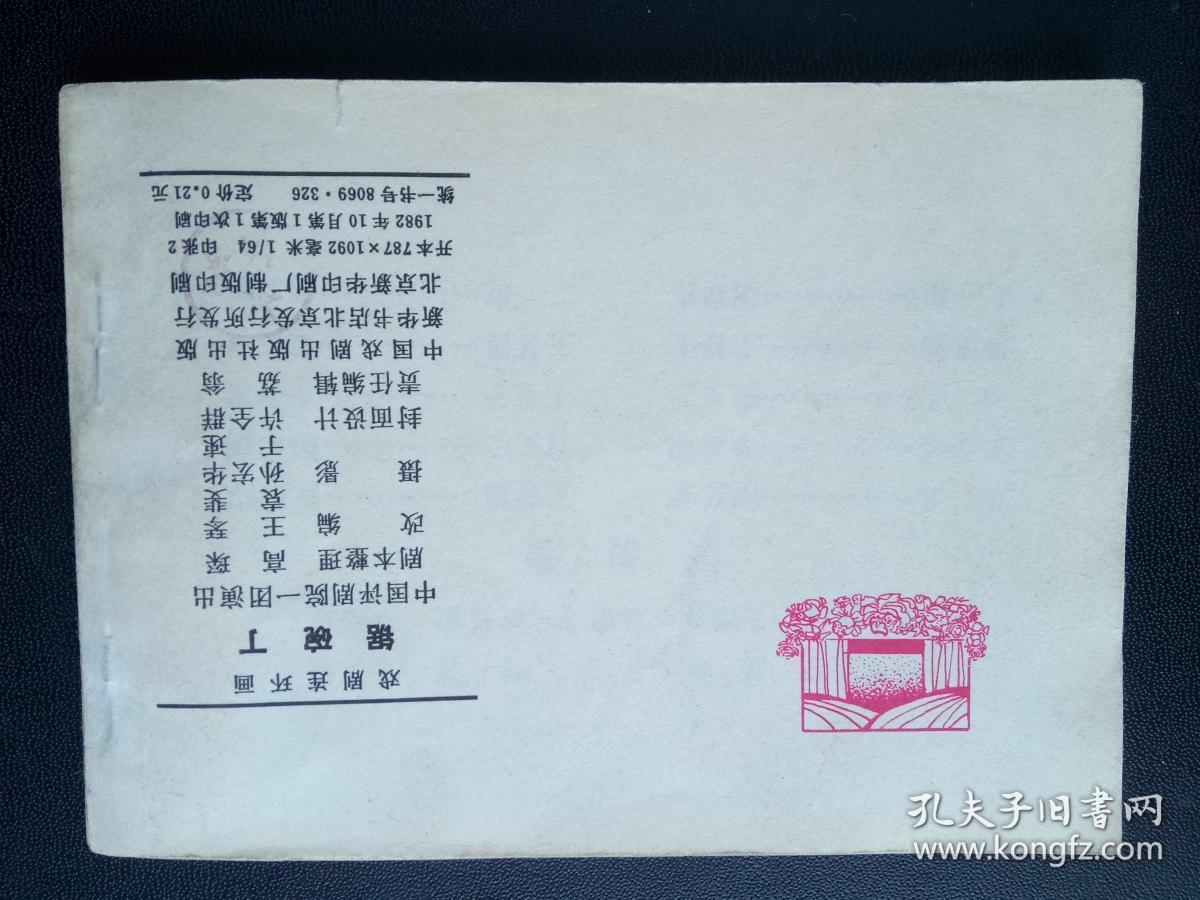 戏剧连环画
锯碗丁
中国评剧院一团演出
剧本整理 高琛
改编 王琴
袁斐
摄影 孙宏华
于速
封面设计 许全群
责任编辑 荔翁
中国戏剧出版社出版
新华书店北京发行所发行
北京新华印刷厂制版印刷
开本787×1092毫米 1/64 印张2
1982年10月第1版第1次印刷
统一书号8069·326 定价0.21元
孔夫子旧書网
www.kongfz.com